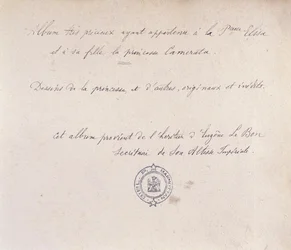 Album très précieux ayant appartenu à la Psse Elisa
et à sa fille, la princesse Camerata.
Dessins de la princesse et d'autres, originaux et inédits.
Cet album provient de l'heritier d'Eugène Le Bon
Secrétaire de Son Altesse Impériale.